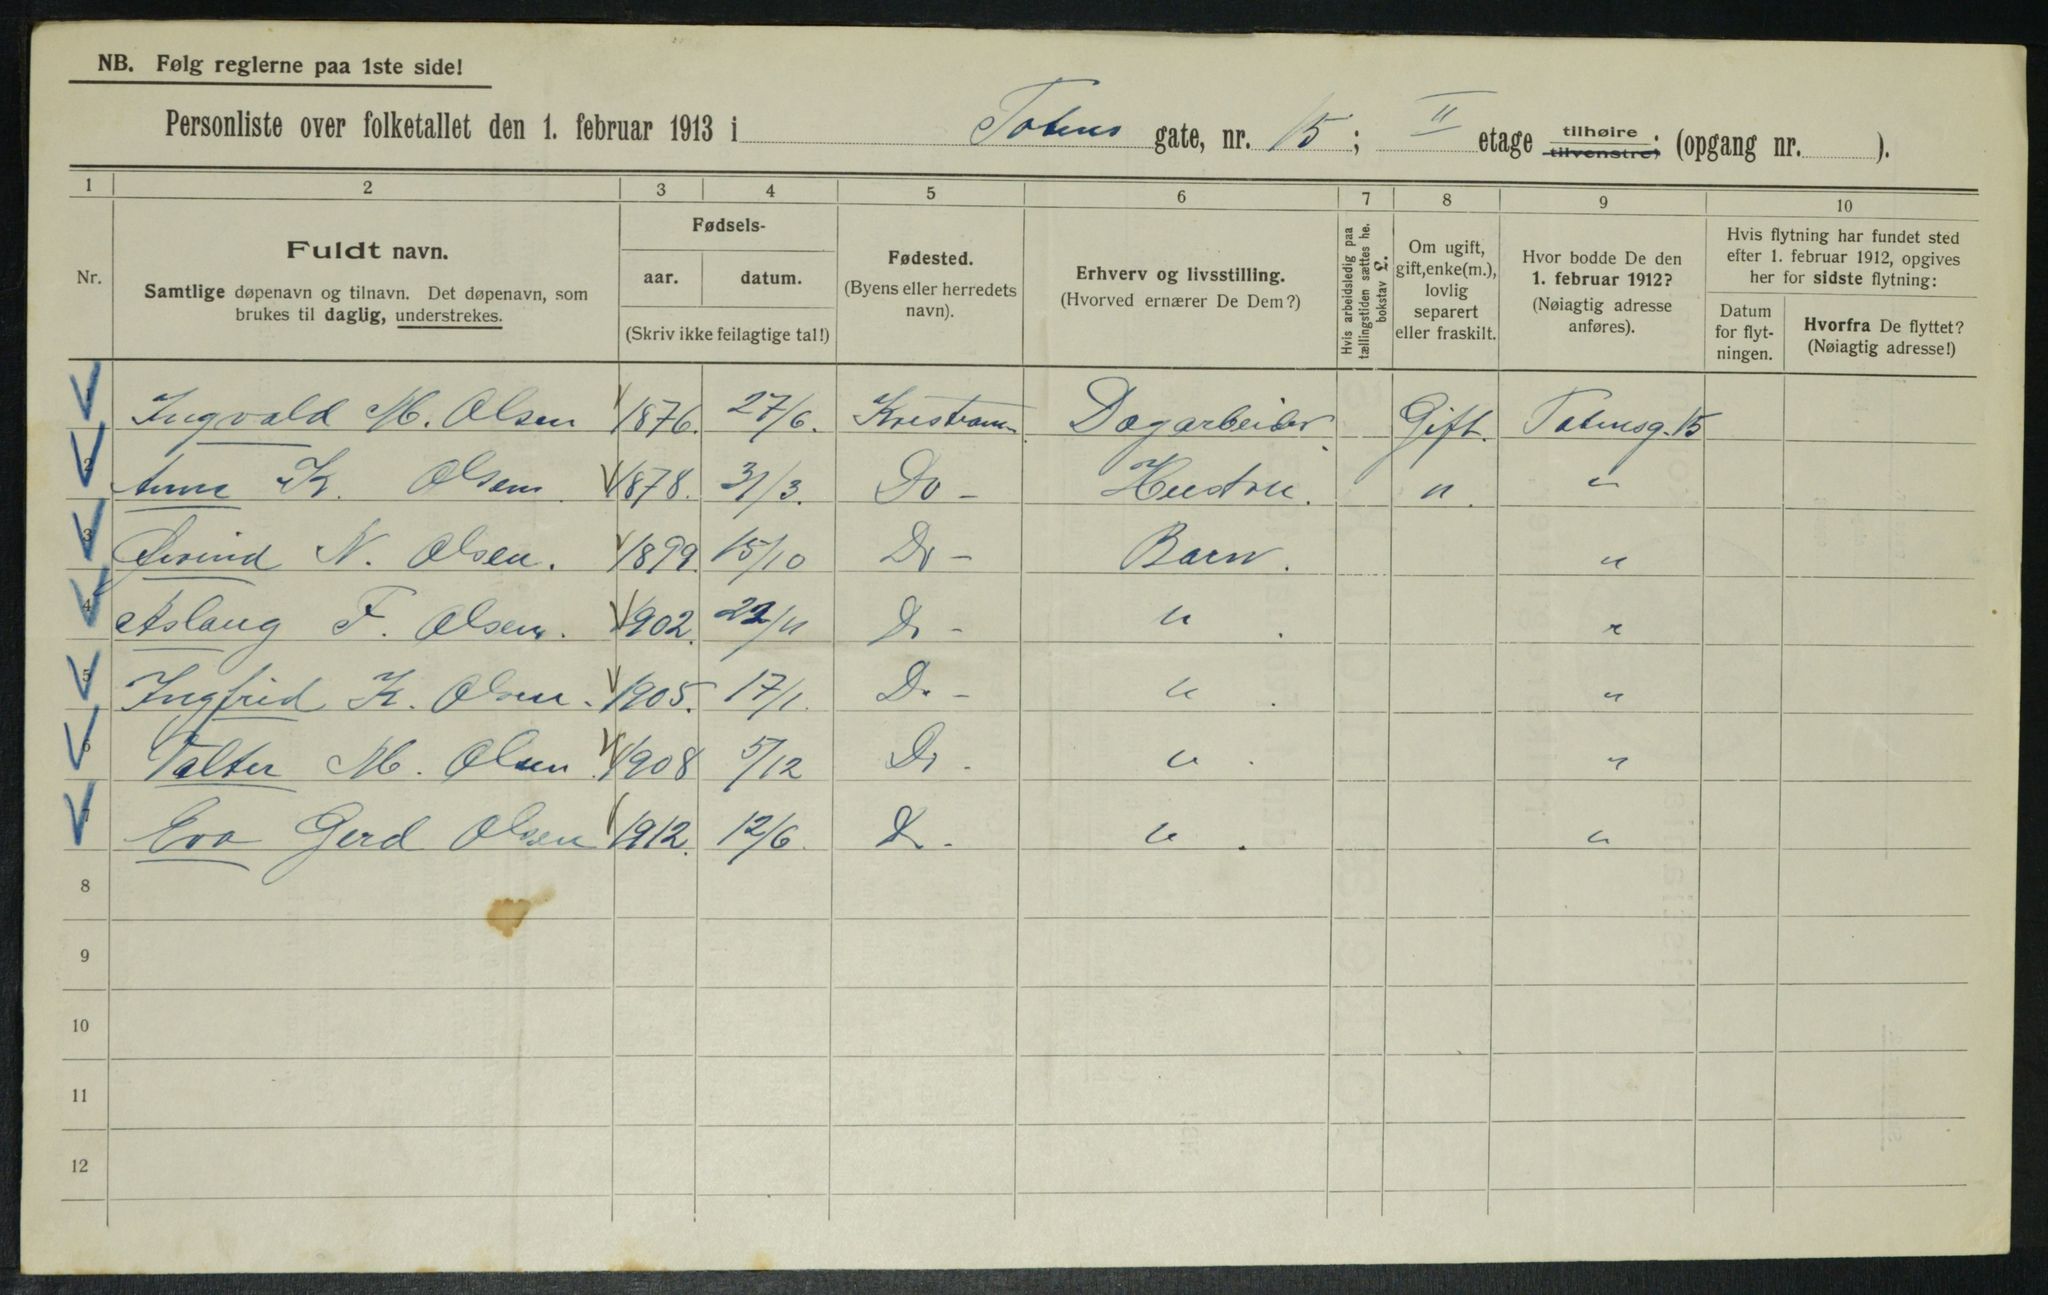 NB. Følg reglerne paa 1ste side!
Personliste over folketallet den 1. februar 1913 i Totens gate, nr. 15; II etage tilhøire tilvenstre; (opgang nr. ).
1 2 3 4 5 6 7 8 9 10
Nr.
Fuldt navn.
Samtlige døpenavn og tilnavn. Det døpenavn, som
brukes til daglig, understrekes.
Fødsels-
aar. datum.
(Skriv ikke feilagtige tal!)
Fødested.
(Byens eller herredets
navn).
Erhverv og livsstilling.
(Hvorved ernærer De Dem?)
Hvis arbeidsledig paa
tællingstiden sættes he.
bokstav £.
Om ugift,
gift, enke(m.),
lovlig
separert
eller fraskilt.
Hvor bodde De den
1. februar 1912?
(Nøiagtig adresse
anføres).
Hvis flytning har fundet sted
efter 1. februar 1912, opgives
her for sidste flytning:
Datum
for flyt-
ningen.
Hvorfra De flyttet?
(Nøiagtig adresse!)
1 Ingvald M. Olsen 1876. 27/6. Kristiania Dagarbeider Gift. Totensg. 15
2 Anna K. Olsen 1878. 31/3. Do - Hustru. " "
3 Øivind N. Olsen. 1899. 15/10 Do - Barn. "
4 Aslaug F. Olsen. 1902. 22/11 Do - " "
5 Ingfrid K. Olsen. 1905. 17/1. Do - " "
6 Valter M. Olsen 1908 5/12 Do - " "
7 Eva Gerd Olsen 1912. 12/6. Do - " "
8
9
10
11
12